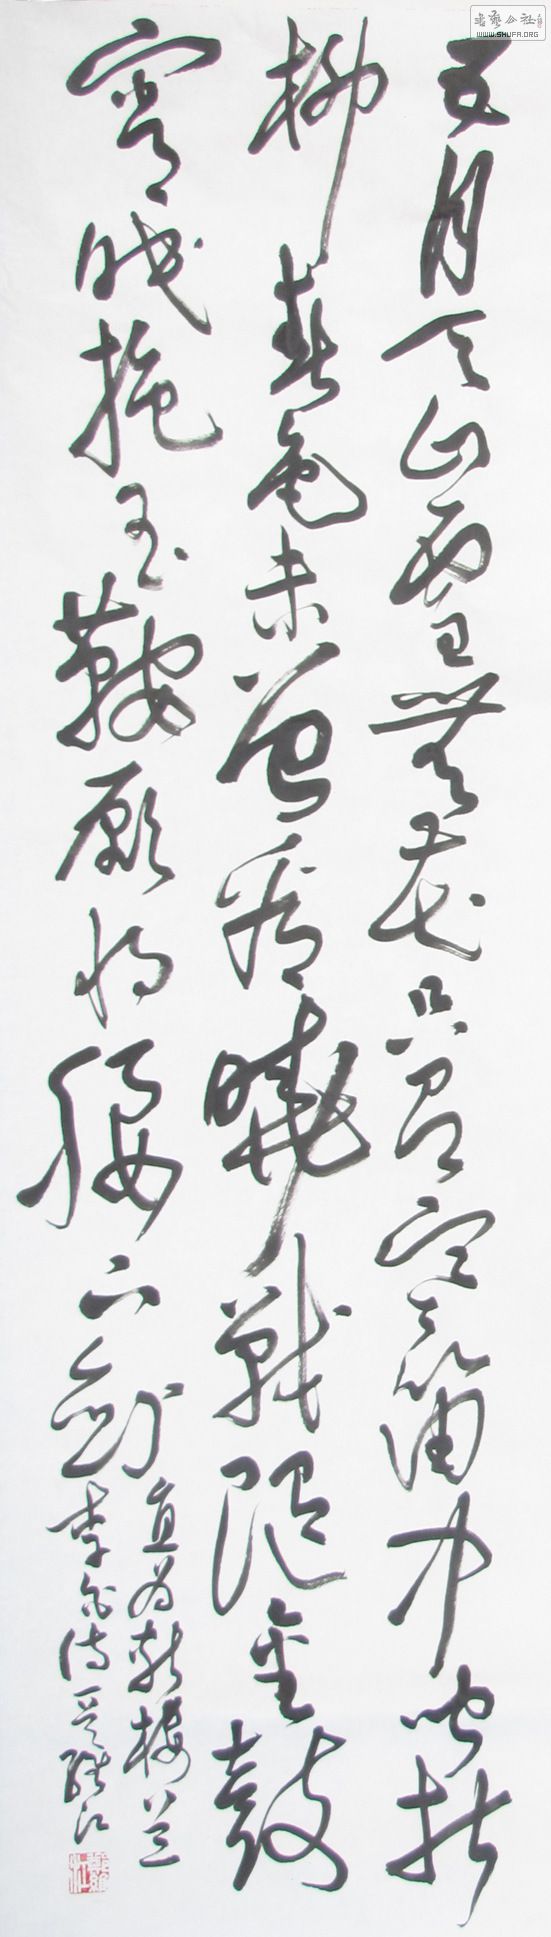 五月天山雪無花只有寒笛中聞折
柳春色未曾看曉戰隨金鼓
宵眠抱玉鞍願將腰下劍
直為斬樓蘭
李白詩
書藝公社
WWW.SHUFA.ORG